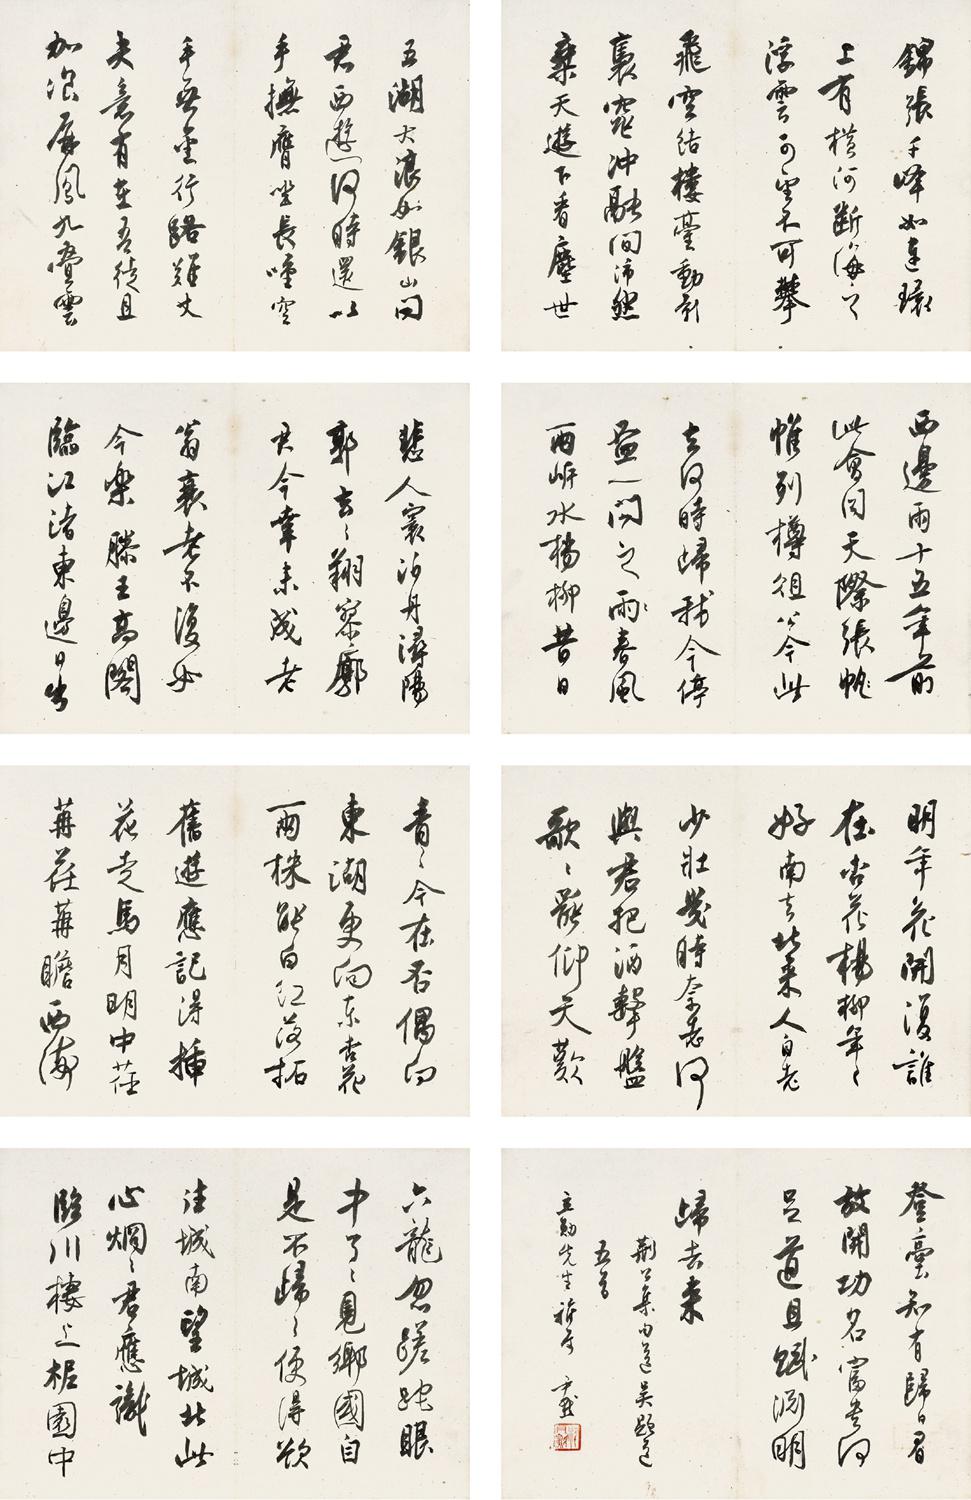 五湖大浪如銀山問
君西遊何時還以
手撫膺坐長嘆空
手無金行路難丈
夫意有在吾徒且
加飡屏風九疊雲
錦張千峰如連環
上有橫河斷海之
浮雲可望不可攀
飛空結樓臺動影
裊窕沖融間沛然
乘天遊下看塵世
悲人寰泊舟潯陽
郭去去翔寥廓
君今幸未成老
翁衰老不復如
今樂滕王高閣
臨江渚東邊日出
西邊雨十五年前
此會同天際張
帷列樽俎公今此
去何時歸我今停
盃一問之雨春風
兩岸水楊柳昔日
青青今在否偶向
東湖更向東杏花
兩株能白紅落拓
舊遊應記得插
花走馬月明中荏
苒荏苒瞻西海
明年花開復誰
在杏花楊柳年年
好南去北來人自老
少壯幾時奈老何
與君把酒擊盤
歌歌罷仰天歎
六龍忽蹉跎眼
中了了見鄉國自
是不歸歸便得欲
往城南望城北此
心炯炯君應識
臨川樓上柅園中
登臺知有歸日眉
放開功名富貴何
足道且賦淵明
歸去來
荊公集句送吳顯道
五首
立勛先生 尹默